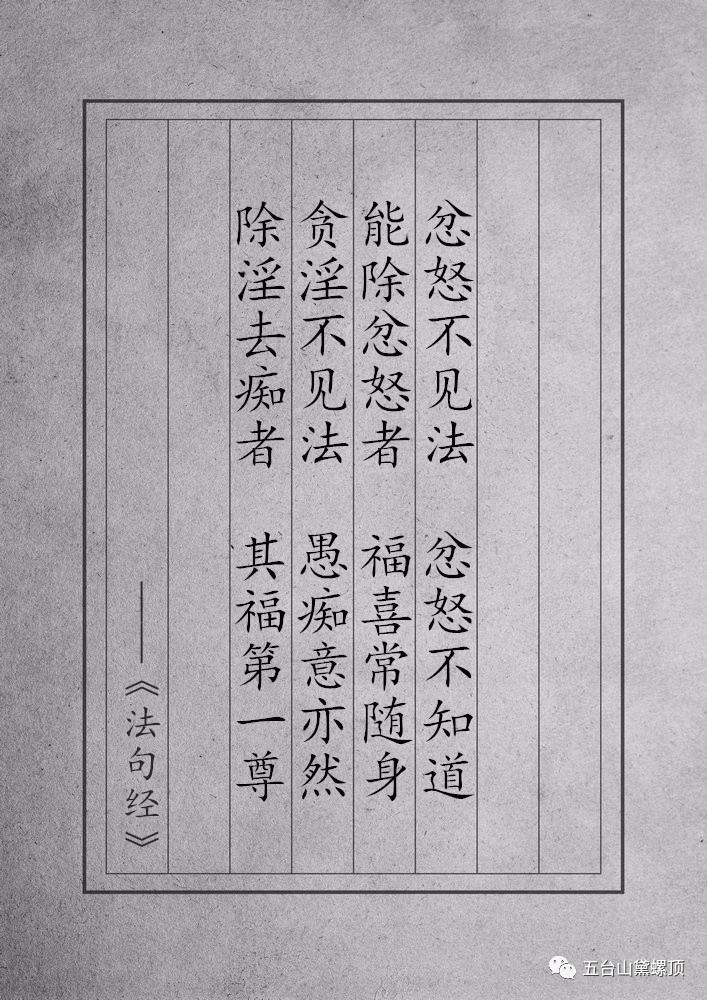 忿怒不见法 忿怒不知道
能除忿怒者 福喜常随身
贪淫不见法 愚痴意亦然
除淫去痴者 其福第一尊
——《法句经》
五台山黛螺顶